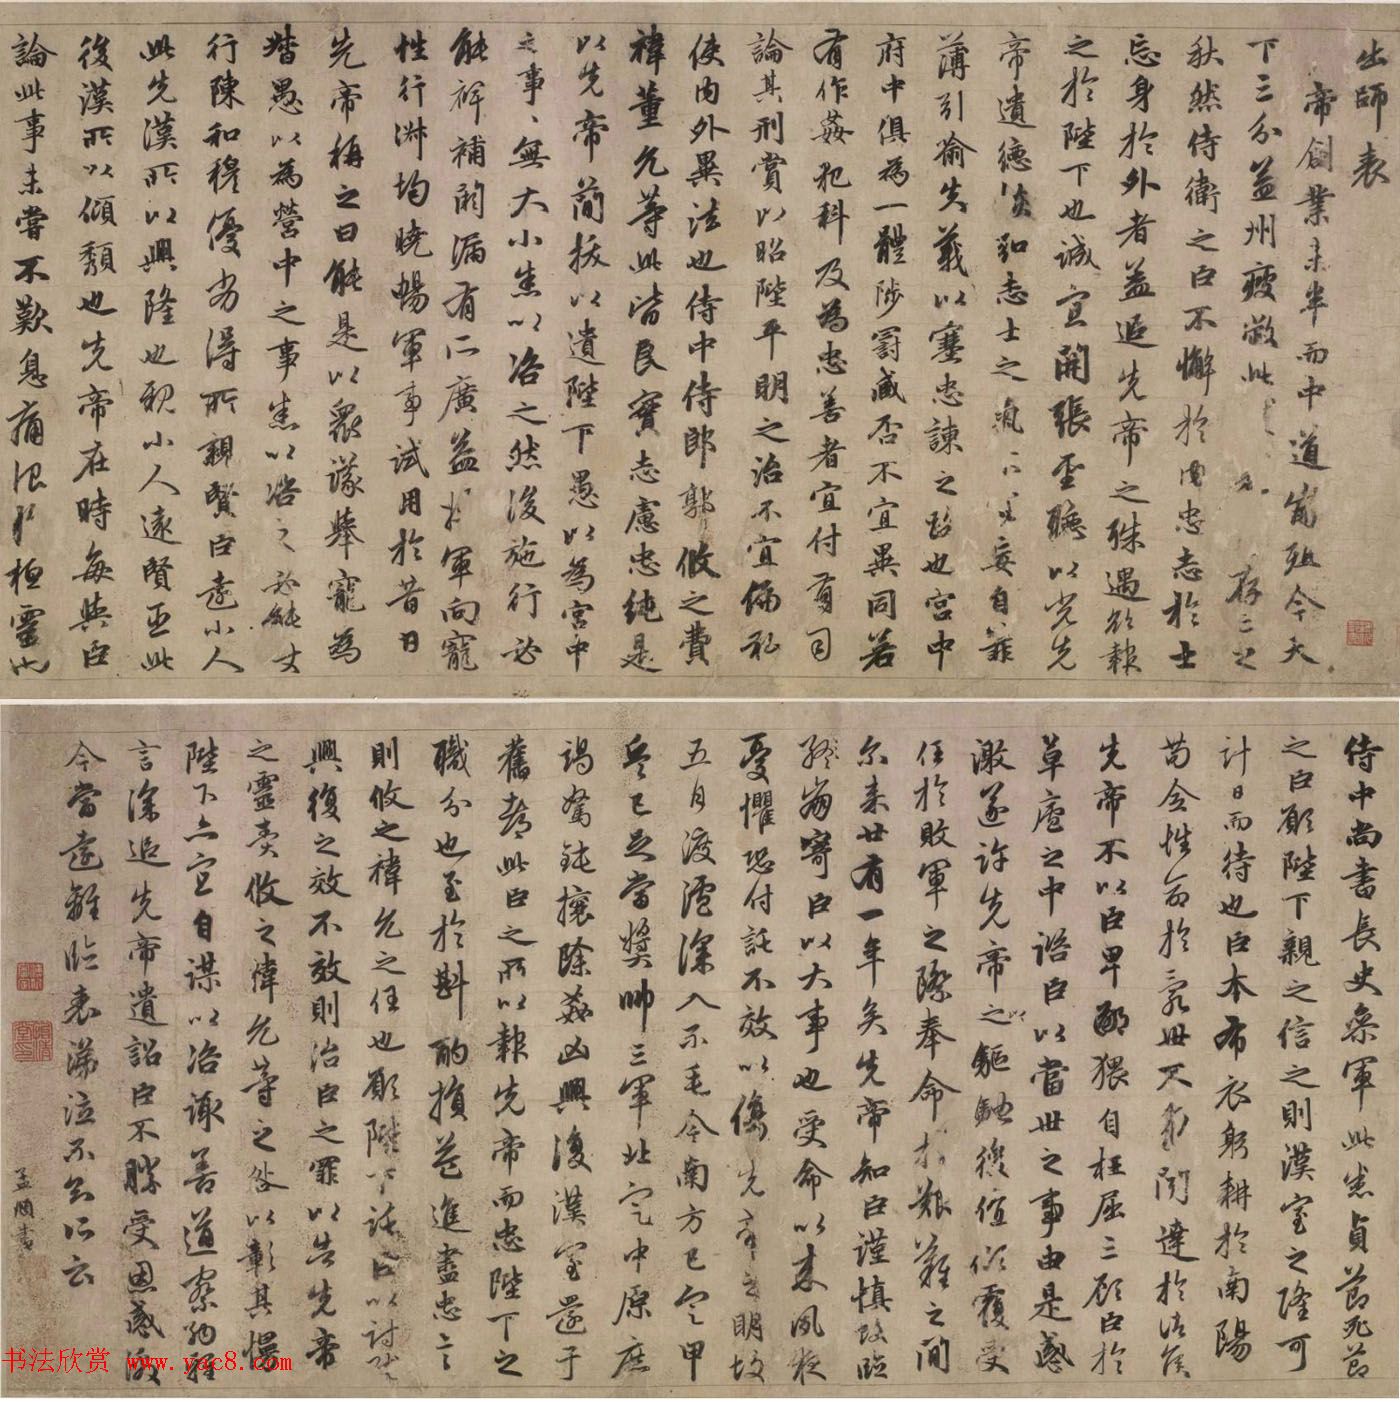 出師表
帝創業未半而中道崩殂今天
下三分益州疲敝此存亡之
秋然侍衛之臣不懈於內忠志於士
忘身於外者蓋追先帝之殊遇欲報
之於陛下也誠宜開張聖聽以光先
帝遺德恢弘志士之氣不宜妄自菲
薄引喻失義以塞忠諫之路也宮中
府中俱為一體陟罰臧否不宜異同若
有作姦犯科及為忠善者宜付有司
論其刑賞以昭陛平明之治不宜偏私
使內外異法也侍中侍郎郭攸之費
禕董允等此皆良實志慮忠純是
以先帝簡拔以遺陛下愚以為宮中
之事、無大小悉以咨之然後施行必
能裨補闕漏有所廣益將軍向寵
性行淑均曉暢軍事試用於昔日
先帝稱之曰能是以眾議舉寵為
督愚以為營中之事悉以咨之必能使
行陳和穆優劣得所親賢臣遠小人
此先漢所以興隆也親小人遠賢臣此
後漢所以傾頹也先帝在時每與臣
論此事未嘗不歎息痛恨於桓靈也
侍中尚書長史參軍此悉貞節死節
之臣願陛下親之信之則漢室之隆可
計日而待也臣本布衣躬耕於南陽
苟全性命於亂世不求聞達於諸侯
先帝不以臣卑鄙猥自枉屈三顧臣於
草廬之中諮臣以當世之事由是感
激遂許先帝以之驅馳後值傾覆受
任於敗軍之際奉命於艱難之間
尔來廿有一年矣先帝知臣謹慎故臨
終崩寄臣以大事也受命以來夙夜
憂懼恐付託不效以傷先帝之明故
五月渡瀘深入不毛今南方已定甲
兵已足當獎帥三軍北定中原庶
竭駑鈍攘除姦凶興復漢室還于
舊都此臣之所以報先帝而忠陛下之
職分也至於斟酌損益進盡忠言
則攸之禕允之任也願陛下託臣以討賊
興復之效不效則治臣之罪以告先帝
之靈責攸之禕允等之咎以彰其慢
陛下亦宜自謀以咨諏善道察納雅
言深追先帝遺詔臣不勝受恩感激
今當遠離臨表涕泣不知所云
孟頫書
书法欣赏 www.yac8.com